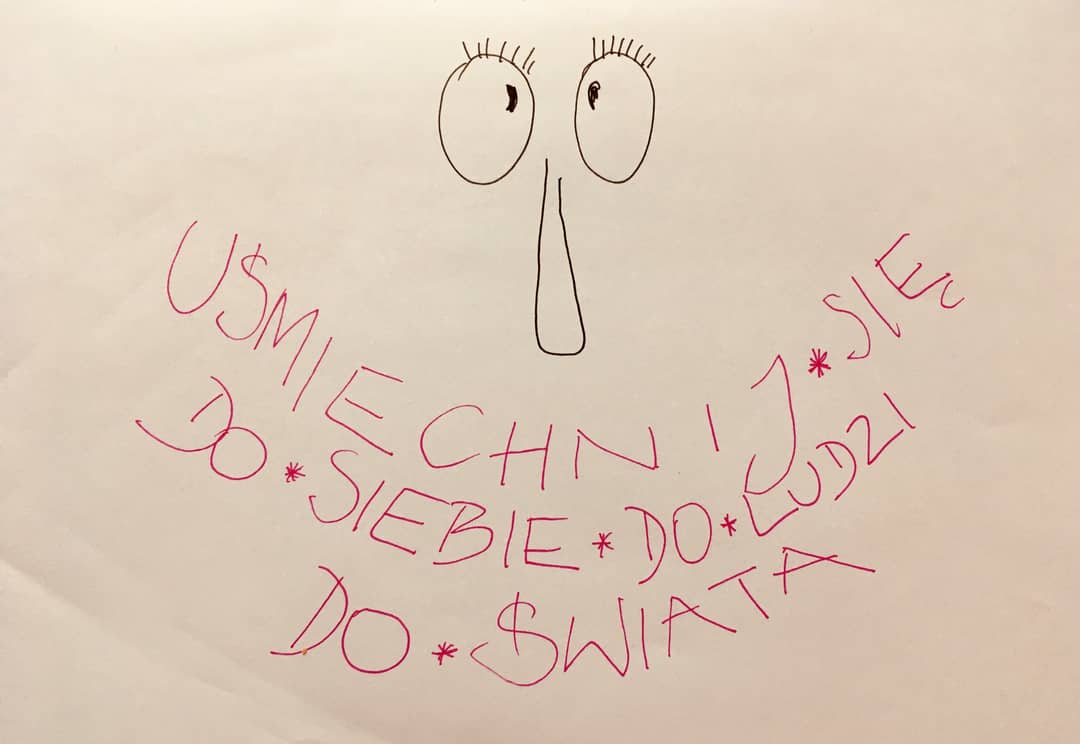 UŚMIECHNIJ * SIĘ
DO * SIEBIE * DO * LUDZI
DO * ŚWIATA